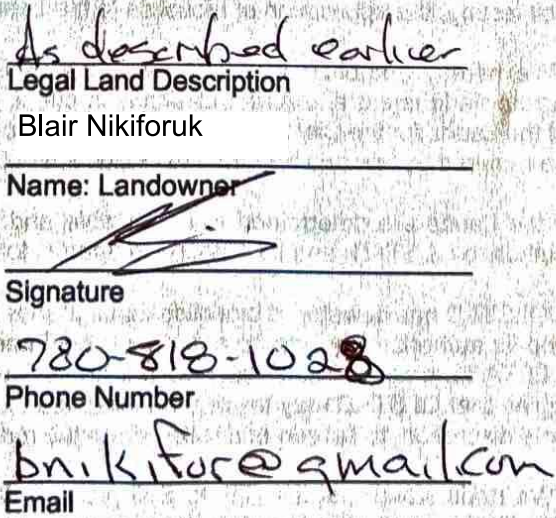 As described earlier
Legal Land Description
Blair Nikiforuk
Name: Landowner
Signature
780-818-1028
Phone Number
bnikifor@gmail.com
Email